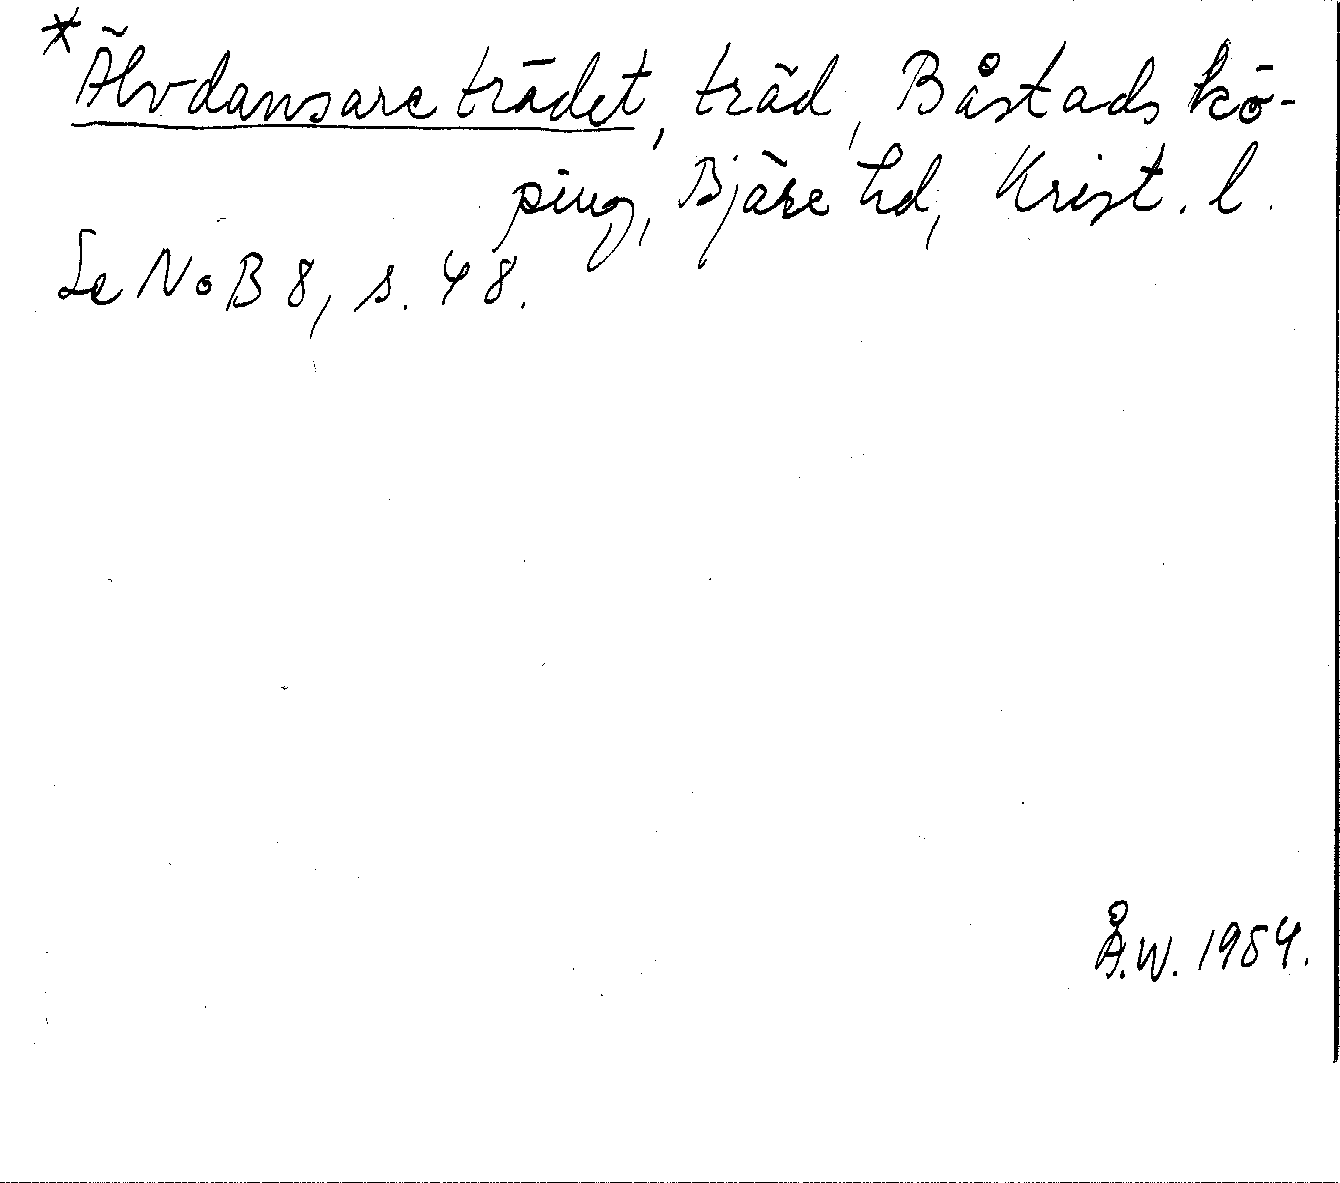 *Älvdansareträdet, träd, Båstads kö-
ping, Bjäre hd, Krist. l.
Se NoB 8, s. 48.
Å.W. 1954.